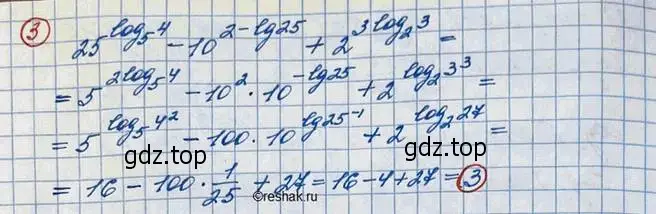 3
25^{log_5 4} - 10^{2-lg25} + 2^{3log_2 3} =
= 5^{2log_5 4} - 10^2 · 10^{-lg25} + 2^{log_2 3^3} =
= 5^{log_5 4^2} - 100 · 10^{lg25^{-1}} + 2^{log_2 27} =
gdz.top gdz.top
= 16 - 100 · 1/25 + 27 = 16 - 4 + 27 = 3
©reshak.ru